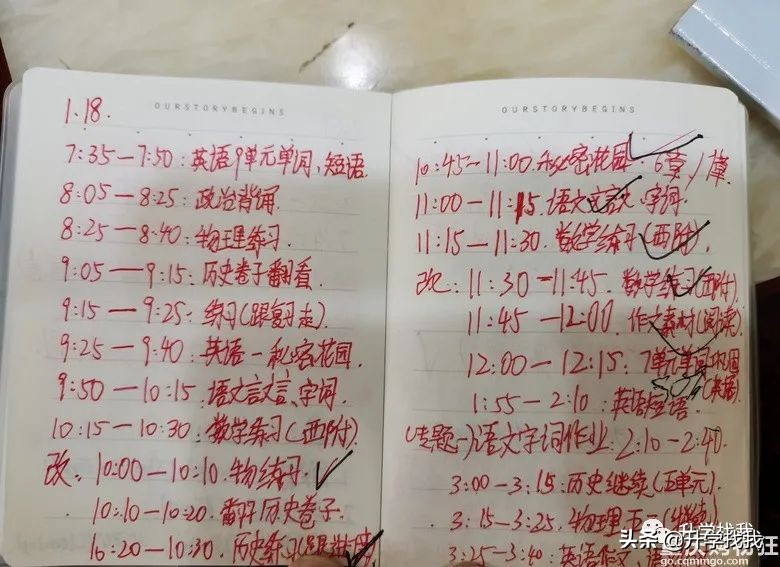 OURSTORYBEGINS
1.18.
7:35—7:50:英语9单元单词、短语
8:05—8:25:政治背诵
8:25—8:40:物理练习.
9:05—9:15:历史卷子翻看.
9:15—9:25:练习(跟复习走).
9:25—9:40:英语—秘密花园.
9:50—10:15.语文言文、字词.
10:15—10:30.数学练习(西附).
改:10:00—10:10.物练习.
10:10—10:20.翻开历史卷子.
10:20—10:30.历史练习
OURSTORYBEGINS
10:45—11:00.秘密花园
11:00—11:15.语文文言文、字词.
11:15—11:30.数学练习(西附),
改:11:30—11:45.数学练习(西附).
11:45—12:00.作文素材(阅读).
12:00—12:15:7单元单词巩固
(英语)
1:55—2:10:英语短语
(专题一)语文字词作业:2:10—2:40.
3:00—3:15:历史继续(五单元).
3:15—3:25.物理
3:25—3:40:英语作文,
升学找我
头条@升学找我
go.cqmmgo.com